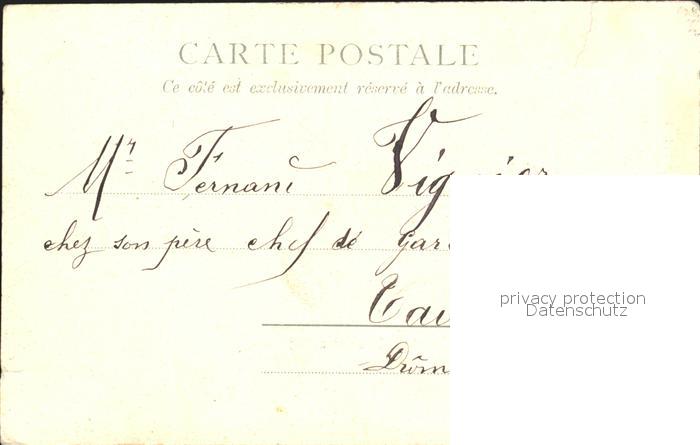 CARTE POSTALE
Ce côté est exclusivement réservé à l'adresse.
Mr Fernand
chez son père chef de
privacy protection
Datenschutz